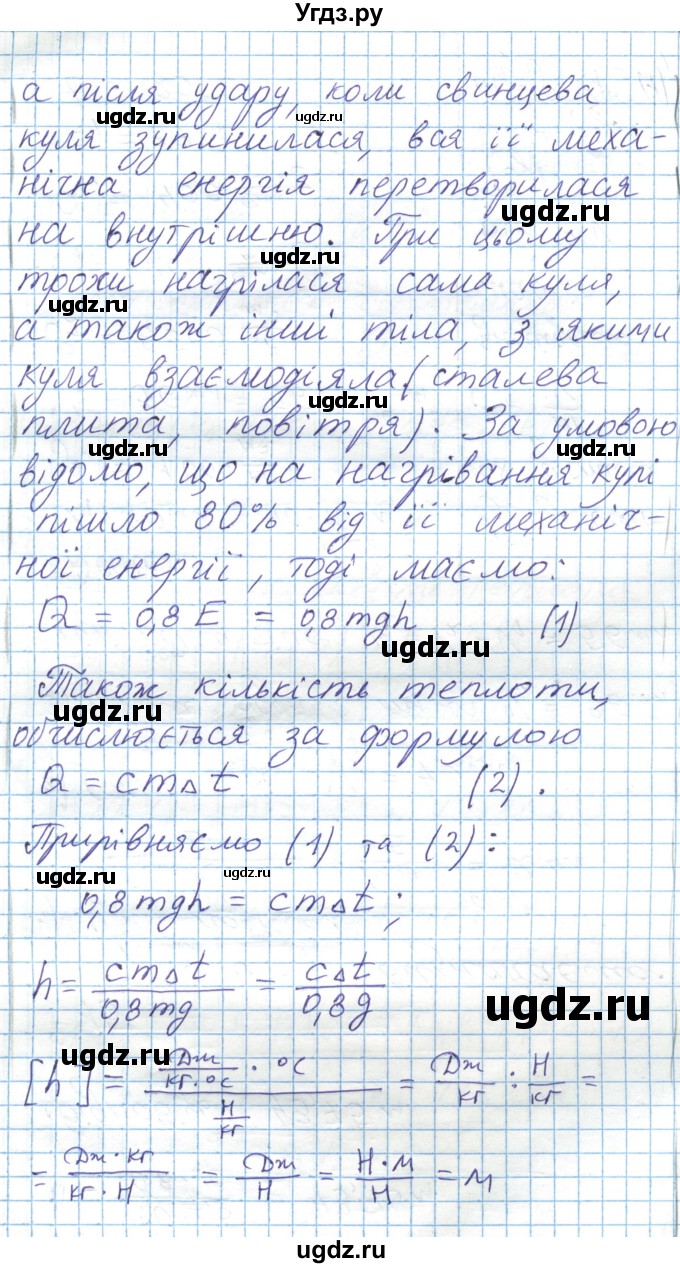 Угдз.ру
а після удару, коли свинцева
ugdz.ru ugdz.ru
куля зупинилася, вся її меха-
нічна енергія перетворилася
ugdz.ru
на внутрішню. При цьому
ugdz.ru
трохи нагрілася сама куля,
ugdz.ru
а також інші тіла, з якими
куля взаємодіяла (сталева
ugdz.ru
плита, повітря). За умовою
ugdz.ru
відомо, що на нагрівання кулі
пішло 80% від її механіч-
ної енергії, тоді маємо:
Q = 0,8 E = 0,8 mgh (1)
ugdz.ru
Також кількість теплоти,
ugdz.ru
обчислюється за формулою
Q = cm∆t (2).
Прирівняємо (1) та (2):
ugdz.ru ugdz.ru
0,8 mgh = cm∆t;
h = cm∆t / 0,8mg = c∆t / 0,8g
ugdz.ru
ugdz.ru
[h] = (Дж / кг·°С · °С) / (Н / кг) = Дж / кг : Н / кг =
= Дж·кг / кг·Н = Дж / Н = Н·м / Н = м
ugdz.ru